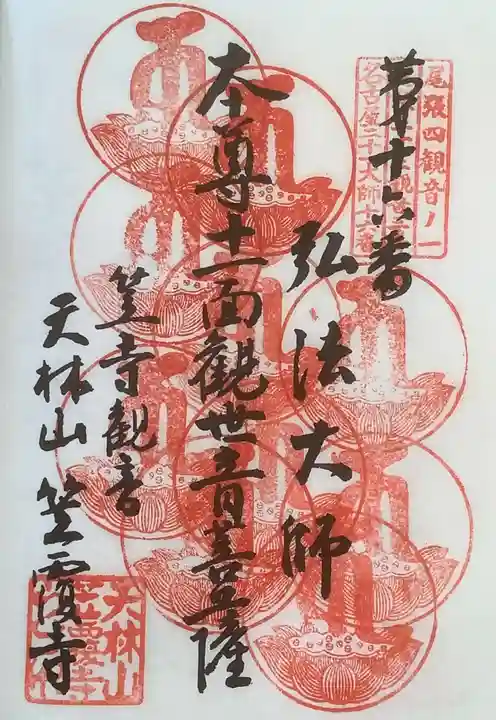 尾張四観音ノ一
名古屋二十一大師十六番
第十六番
弘法大師
本尊十一面観世音菩薩
笠寺観音
天林山笠覆寺